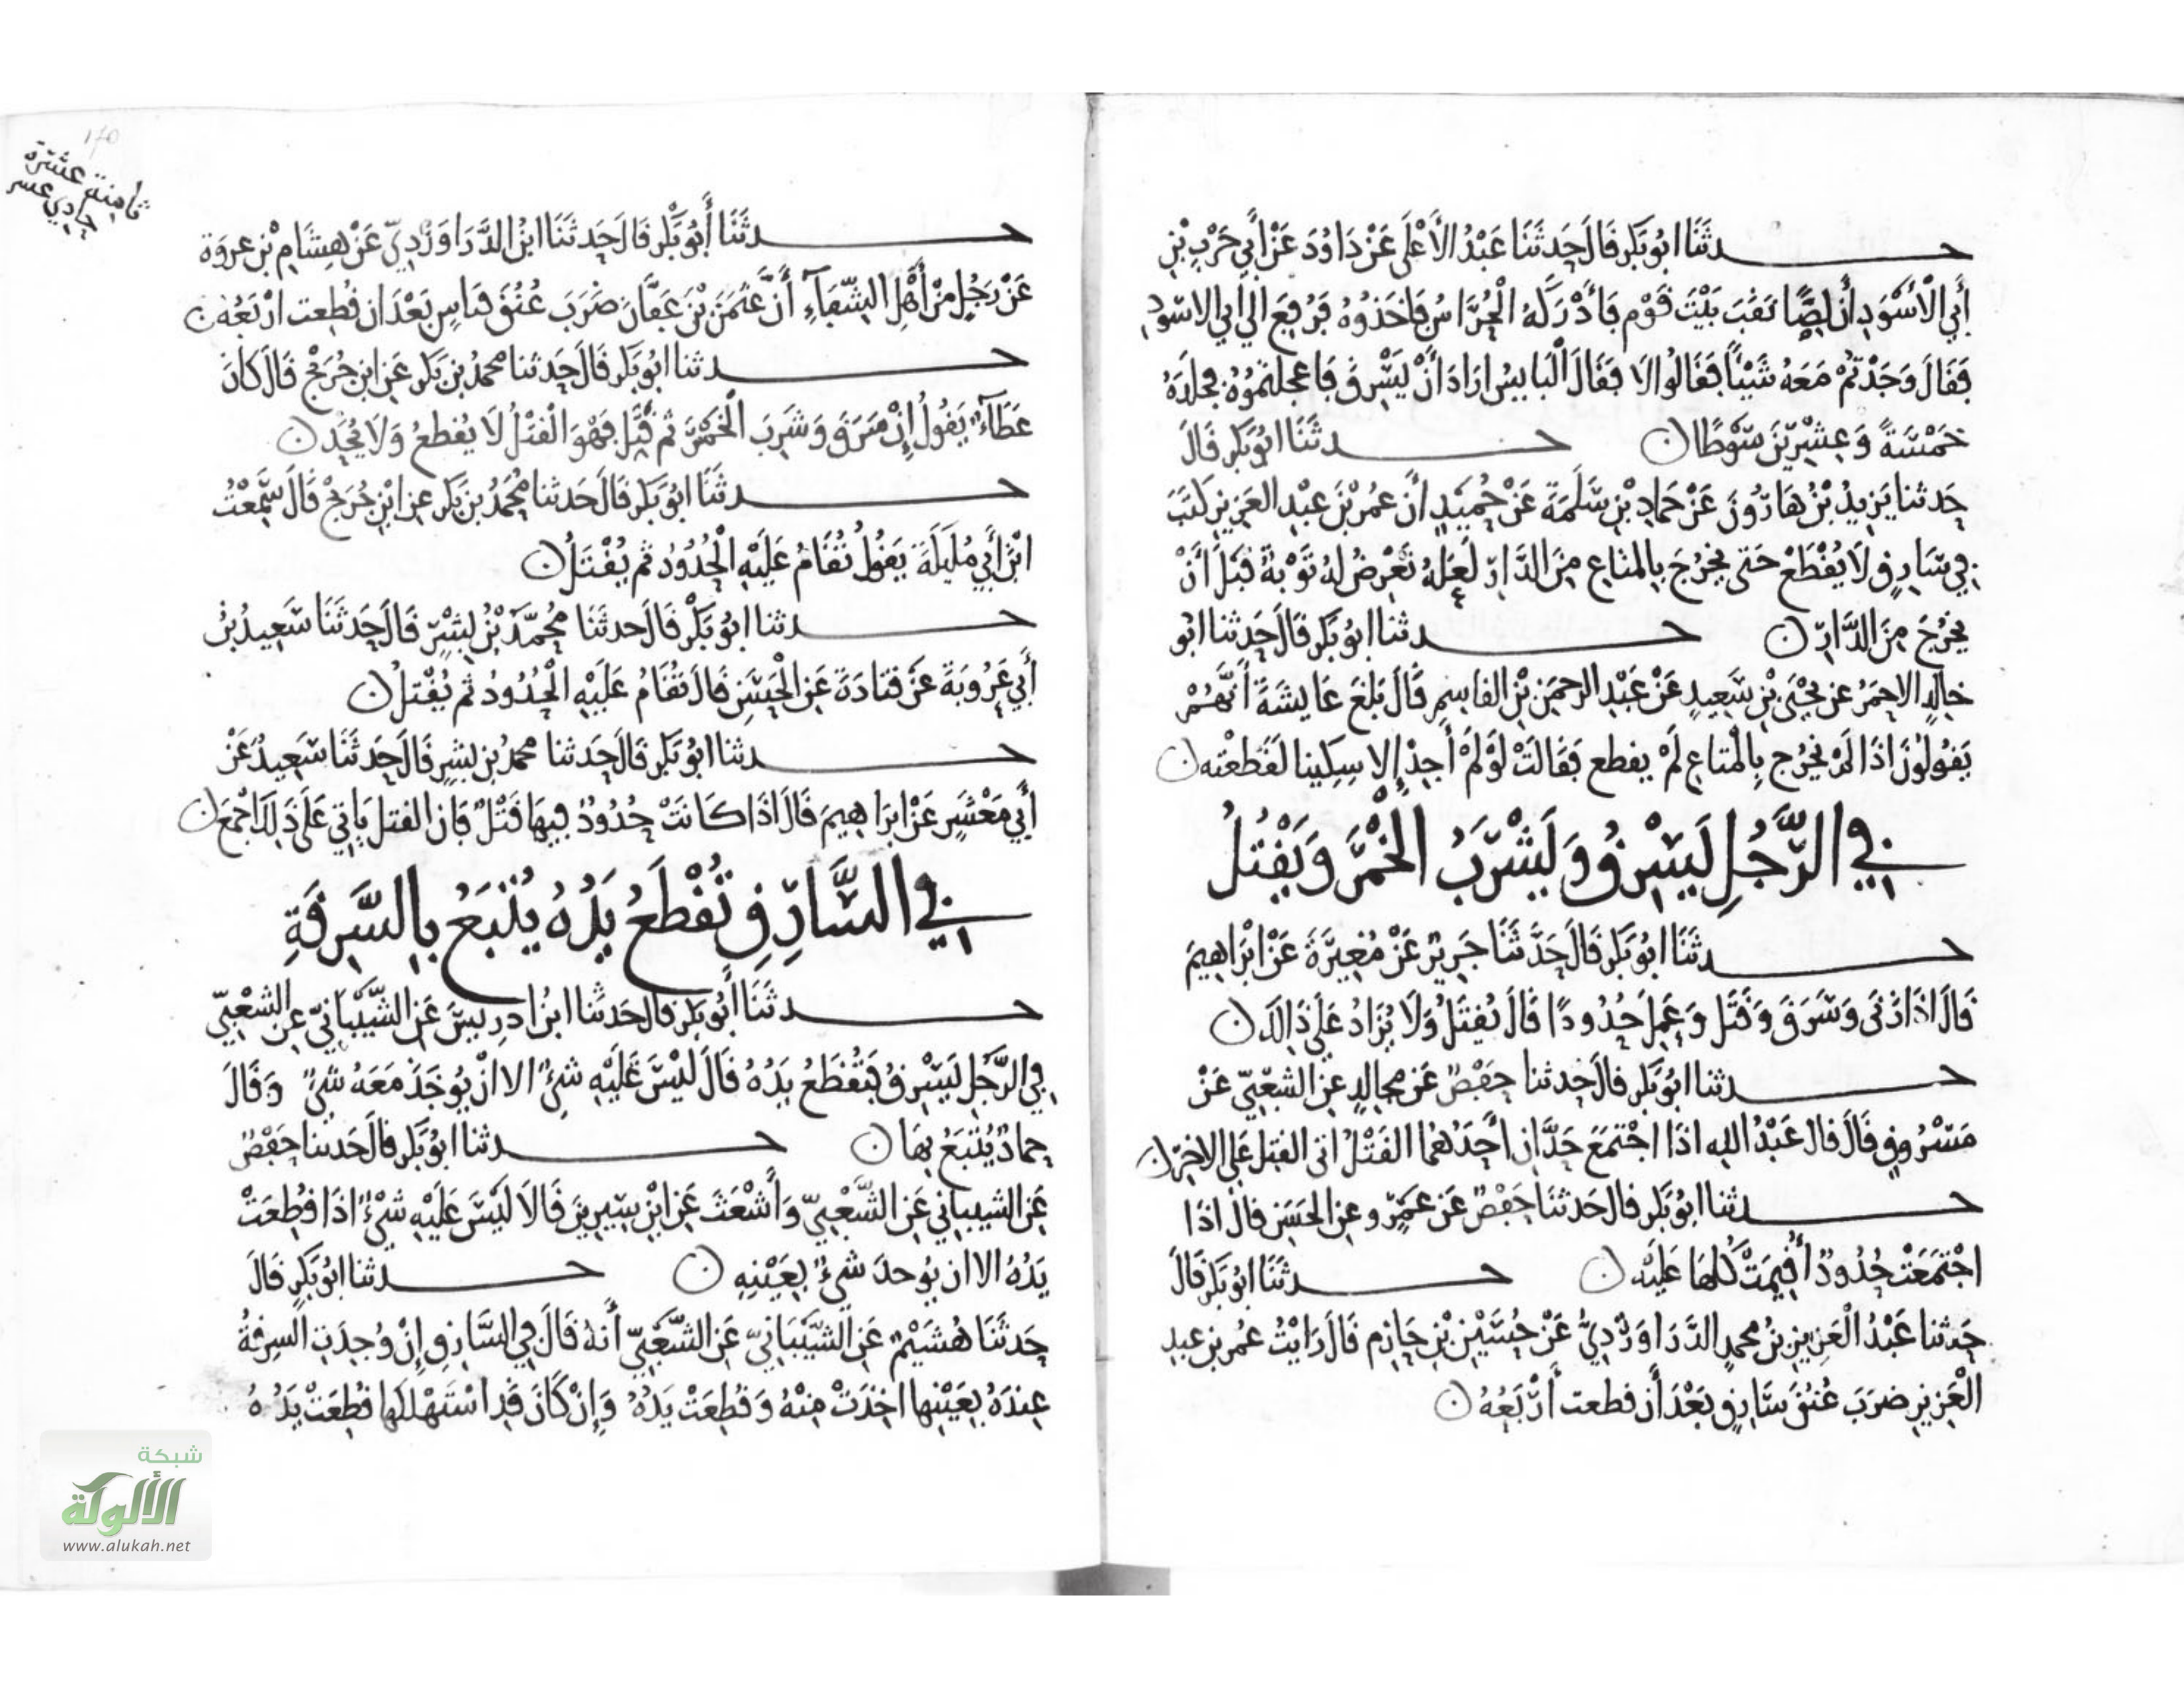 حدثنا ابو بكر قال حدثنا عبد الأعلى عن داود عن أبي حرب بن
أبي الأسود أن لصا نقب بيت قوم فأدركه الحراس فاخذوه فرفع الي ابي الاسود
فقال وجدتم معه شيئا فقالوا لا فقال البايس اراد أن يسرق فاعجلتموه فجلده
خمسة وعشرين سوطا ن حدثنا ابو بكر قال
حدثنا يزيد بن هارون عن حماد بن سلمة عن حميد أن عمر بن عبد العزيز كتب
في سارق لا يقطع حتى يخرج بالمتاع من الدار لعله تعرض له توبة قبل أن
يخرج من الدار ن حدثنا ابو بكر قال حدثنا ابو
خالد الاحمر عن يحيى بن سعيد عن عبد الرحمن بن القاسم قال بلغ عايشة أنهم
يقولون اذا لم يخرج بالمتاع لم يقطع فقالت لو لم أجد إلا سكينا لقطعته ن
في الرجل يسرق ويشرب الخمر ويقتل
حدثنا ابو بكر قال حدثنا جرير عن مغيرة عن ابراهيم
قال اذا زنى وسرق وقتل وعمل حدودا قال يقتل ولا يزاد على ذالك ن
حدثنا ابو بكر قال حدثنا حفص عن مجالد عن الشعبي عن
مسروق قال قال عبد الله اذا اجتمع حدان احدهما القتل اتى القتل على الاخر ن
حدثنا ابو بكر قال حدثنا حفص عن عمرو عن الحسن قال اذا
اجتمعت حدود أقيمت كلها عليه ن حدثنا ابو بكر قال
حدثنا عبد العزيز بن محمد الدراوردي عن حسين بن حازم قال رايت عمر بن عبد
العزيز ضرب عنق سارق بعد أن قطعت أربعه ن
ثامنة عشرة
حادي عشر
حدثنا أبو بكر قال حدثنا ابن الدراوردي عن هشام بن عروة
عن رجل من أهل السقاء أن عثمن بن عفان ضرب عنق قاس بعد ان قطعت اربعه ن
حدثنا ابو بكر قال حدثنا محمد بن بكر عن ابن جريج قال كان
عطاء يقول إن سرق وشرب الخمر ثم قتل فهو القتل لا يقطع ولا يحد ن
حدثنا ابو بكر قال حدثنا محمد بن بكر عن ابن جريج قال سمعت
ابن أبي مليكة يقول تقام عليه الحدود ثم يقتل ن
حدثنا ابو بكر قال حدثنا محمد بن بشر قال حدثنا سعيد بن
أبي عروبة عن قتادة عن الحسن قال تقام عليه الحدود ثم يقتل ن
حدثنا ابو بكر قال حدثنا محمد بن بشر قال حدثنا سعيد عن
أبي معشر عن ابراهيم قال اذا كانت حدود فيها قتل فان القتل ياتي على ذلك اجمع ن
في السارق تقطع يده يتبع بالسرقة
حدثنا أبو بكر قال حدثنا ابن ادريس عن الشيباني عن الشعبي
في الرجل يسرق فتقطع يده قال ليس عليه شيء الا ان يوجد معه شي وقال
حماد يتبع بها ن حدثنا ابو بكر قال حدثنا حفص
عن الشيباني عن الشعبي وأشعث عن ابن سيرين قالا ليس عليه شيء اذا قطعت
يده الا ان يوجد شيء بعينه ن حدثنا ابو بكر قال
حدثنا هشيم عن الشيباني عن الشعبي أنه قال في السارق إن وجدت السرقة
عنده بعينها اخذت منه وقطعت يده وإن كان قد استهلكها قطعت يده
شبكة
الألوكة
www.alukah.net